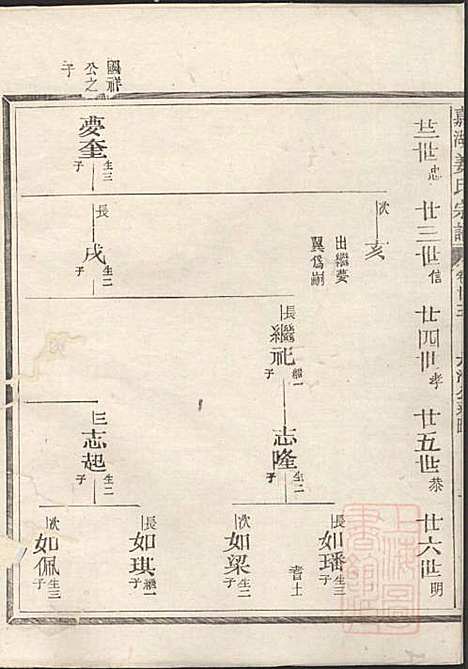 嘉湖姜氏宗譜
卷廿三
廿二世忠 廿三世信 廿四世孝 廿五世恭 廿六世明
國祥公之子
夢奎 生三子
次 亥 出繼夢翼為嗣
長 戌 生二子
長 繼祀 繼一子
志隆 生二子
三 志起 生二子
長 如璠 生三子 耆士
次 如梁 生二子
長 如琪 繼一子
次 如佩 生三子